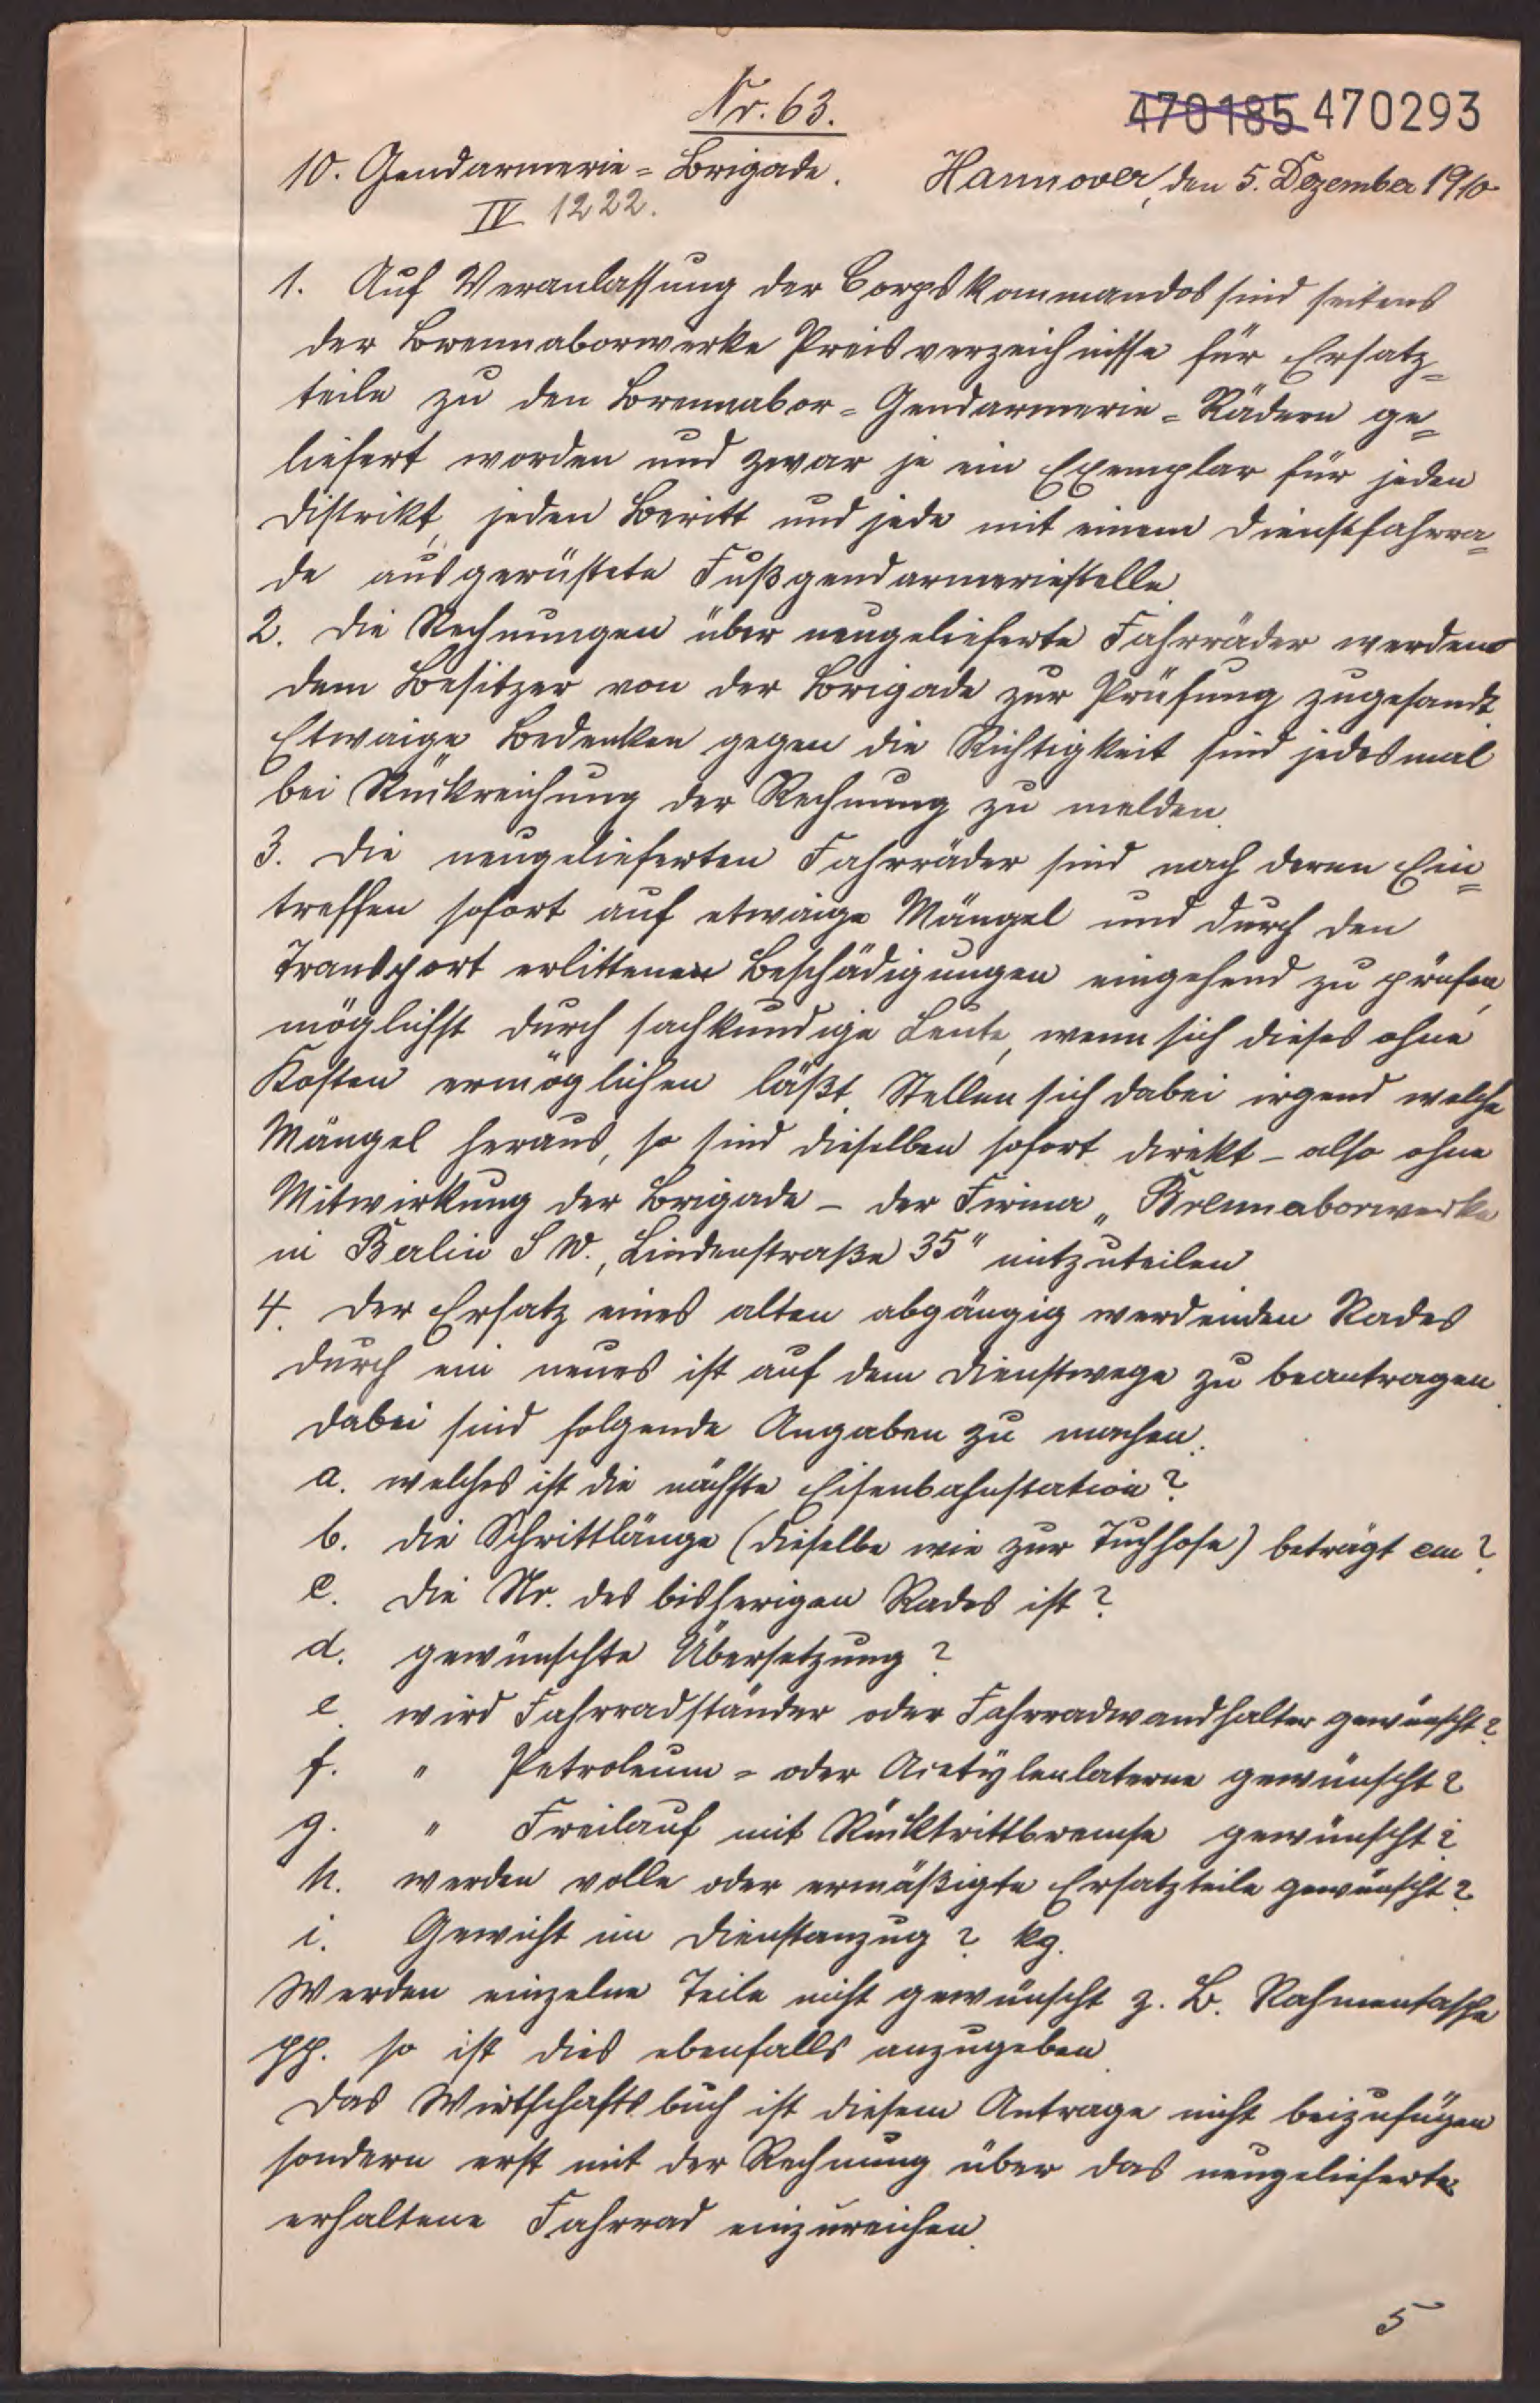 Nr. 63.
470185 470293
10. Gendarmerie-Brigade. Hannover, den 5. Dezember 1910
IV 1222.
1. Auf Veranlassung der Corpskommandos sind seitens
der Brennaborwerke Preisverzeichnisse für Ersatz-
teile zu den Brennabor-Gendarmerie-Rädern ge-
liefert worden und zwar je ein Exemplar für jeden
Distrikt, jeden Beritt und jede mit einem Dienstfahrra-
de ausgerüstete Fußgendarmeriestelle.
2. Die Rechnungen über neugelieferte Fahrräder werden
dem Besitzer von der Brigade zur Prüfung zugesandt.
Etwaige Bedenken gegen die Richtigkeit sind jedesmal
bei Rückreichung der Rechnung zu melden.
3. Die neugelieferten Fahrräder sind nach deren Ein-
treffen sofort auf etwaige Mängel und durch den
Transport erlittenen Beschädigungen eingehend zu prüfen,
möglichst durch sachkundige Leute, wenn sich dieses ohne
Kosten ermöglichen läßt. Stellen sich dabei irgend welche
Mängel heraus, so sind dieselben sofort direkt – also ohne
Mitwirkung der Brigade – der Firma „Brennaborwerke
in Berlin S W., Lindenstraße 35" mitzuteilen.
4. Der Ersatz eines alten abgängig werdenden Rades
durch ein neues ist auf dem Dienstwege zu beantragen.
Dabei sind folgende Angaben zu machen:
a. welches ist die nächste Eisenbahnstation?
b. die Schrittlänge (dieselbe wie zur Tuchhose) beträgt cm?
c. die Nr. des bisherigen Rades ist?
d. gewünschte Übersetzung?
e. wird Fahrradständer oder Fahrradwandhalter gewünscht?
f. " Petroleum- oder Acetylenlaterne gewünscht?
g. " Freilauf mit Rücktrittbremse gewünscht?
h. werden volle oder ermäßigte Ersatzteile gewünscht?
i. Gewicht im Dienstanzug? kg.
Werden einzelne Teile nicht gewünscht z. B. Rahmentasche
pp. so ist dies ebenfalls anzugeben.
Das Wirtschaftsbuch ist diesem Antrage nicht beizufügen
sondern erst mit der Rechnung über das neugelieferte
erhaltene Fahrrad einzureichen.
5